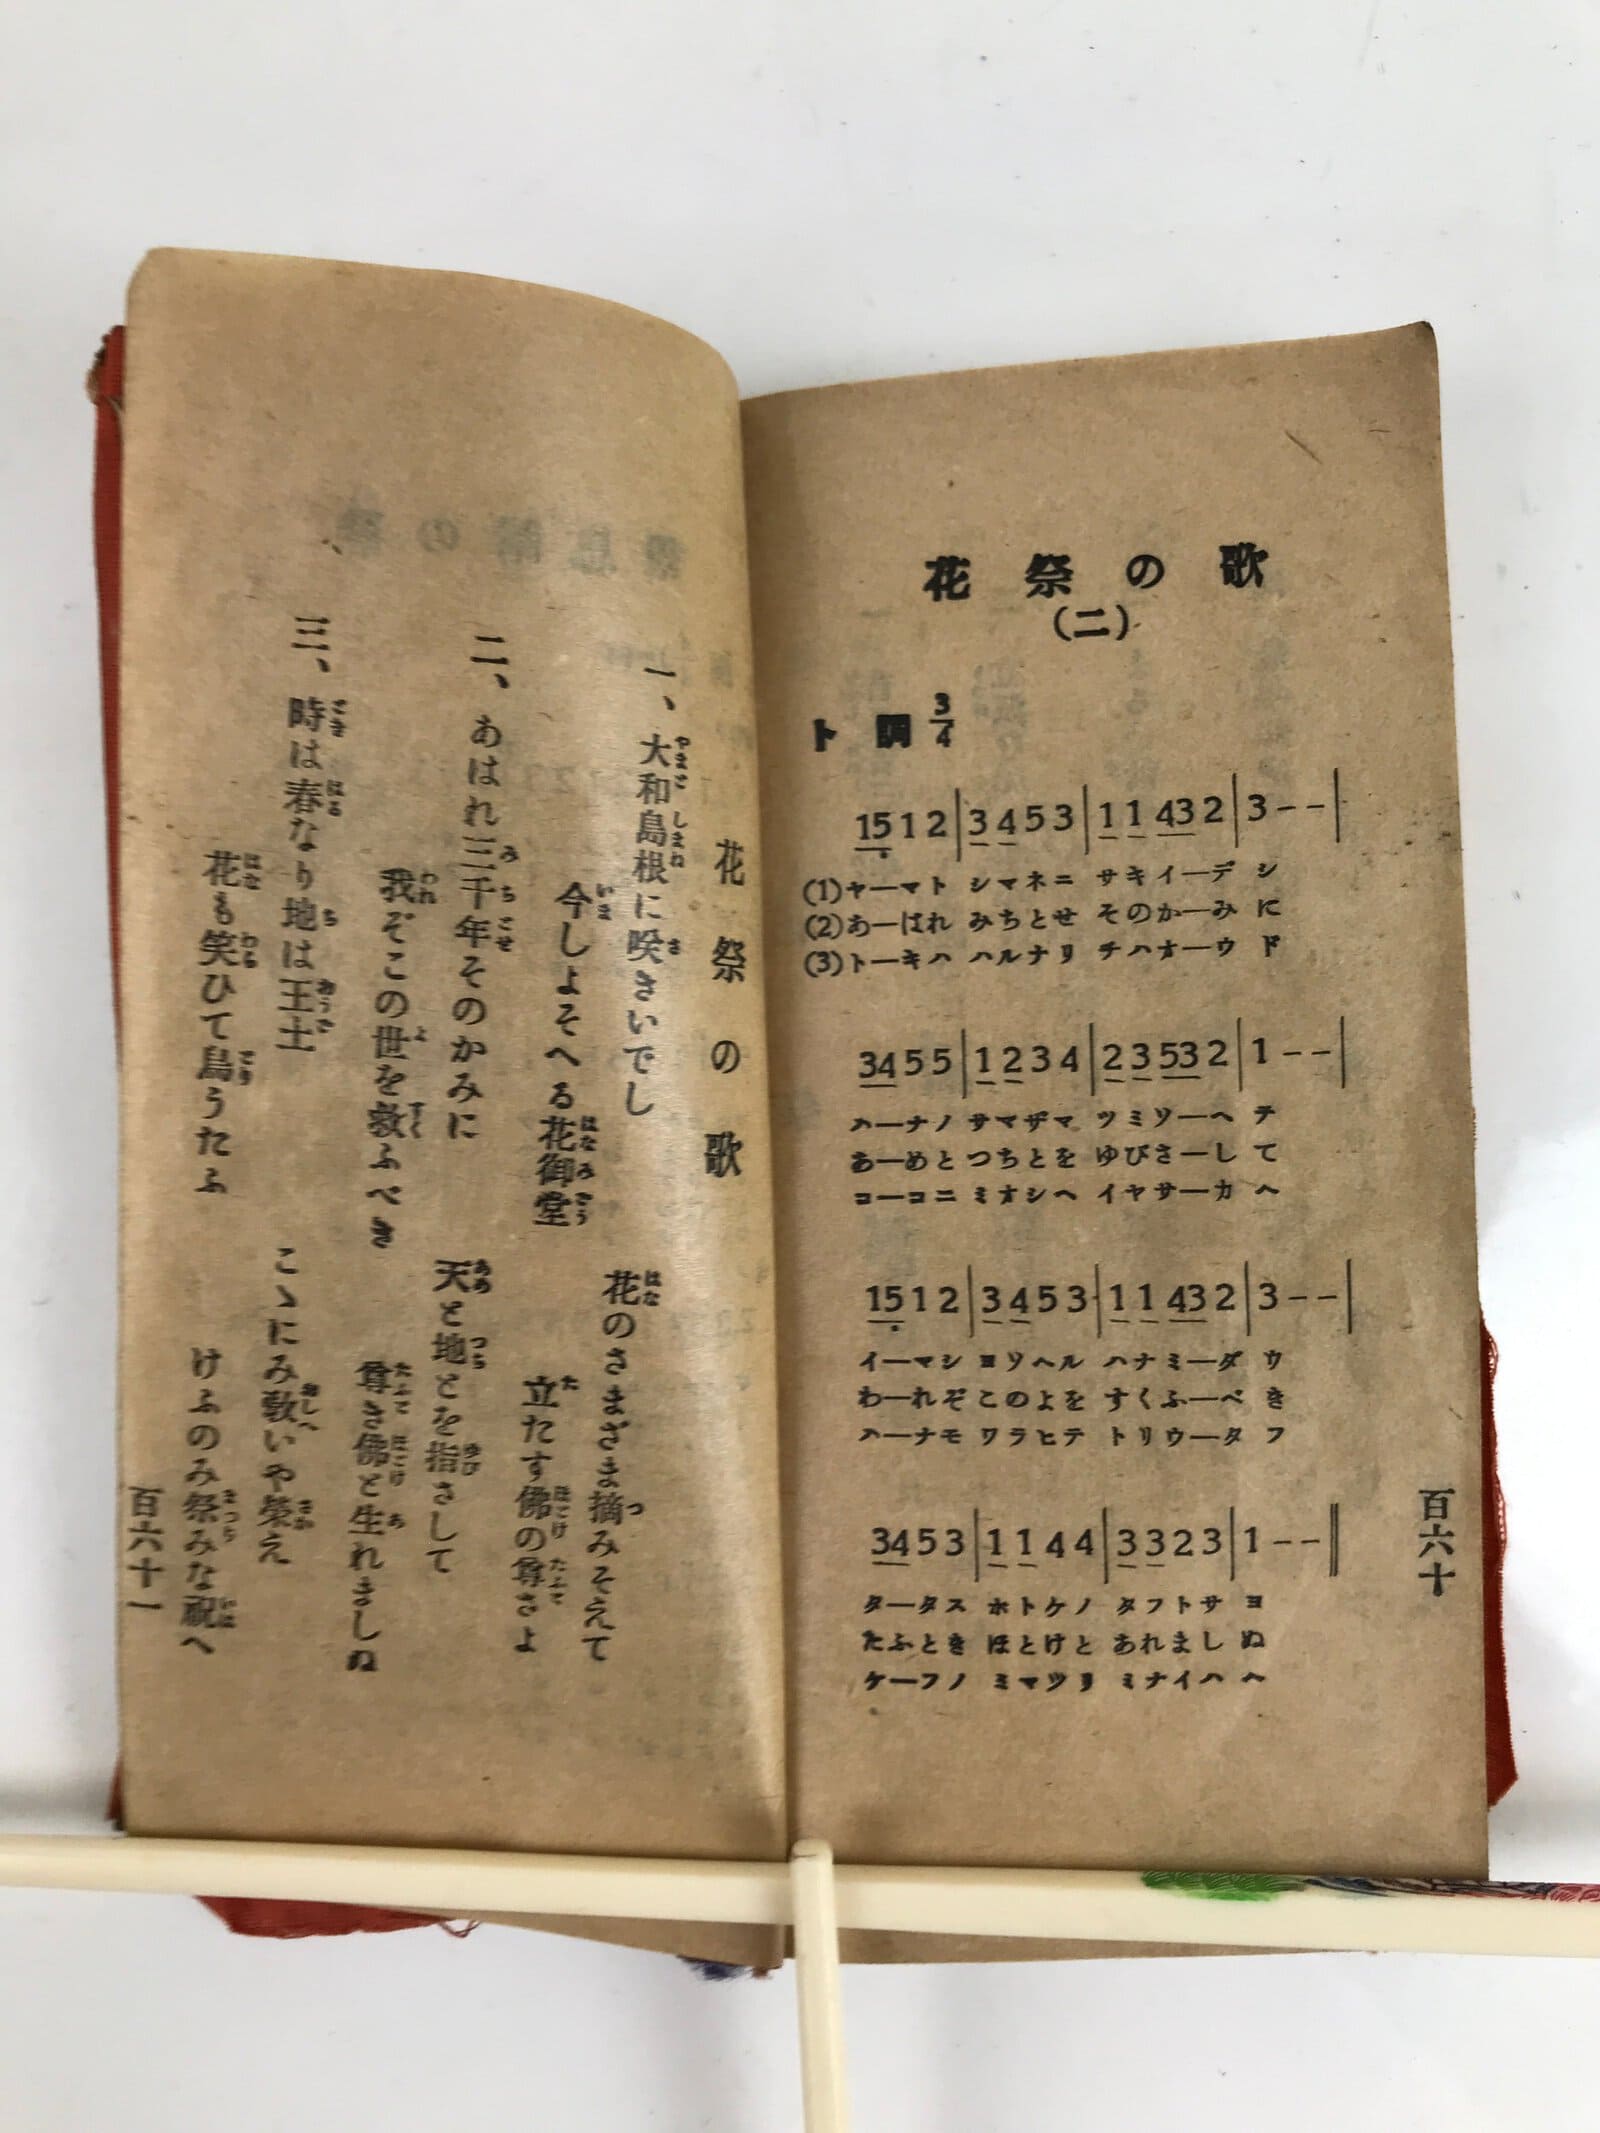 花祭の歌
(二)
ト調 3/4
15 1 2 | 3 4 5 3 | 1 1 43 2 | 3 - - |
(1)ヤ―マト シマネニ サキイ―デ シ
(2)あ―はれ みちとせ そのか―み に
(3)ト―キハ ハルナリ チハオ―ウ ド
34 5 5 | 1 2 3 4 | 2 3 53 2 | 1 - - |
ハ―ナノ サマザマ ツミソ―ヘ テ
あ―めと つちとを ゆびさ―し て
コ―コニ ミオシヘ イヤサ―カ ヘ
15 1 2 | 3 4 5 3 | 1 1 43 2 | 3 - - |
イ―マシ ヨソヘル ハナミ―ダ ウ
わ―れぞ このよを すくふ―べ き
ハ―ナモ ワラヒテ トリウ―タ フ
34 5 3 | 1 1 4 4 | 3 3 2 3 | 1 - - ‖
タ―タス ホトケノ タフトサ ヨ
たふとき ほとけと あれまし ぬ
ケ―フノ ミマツリ ミナイハ ヘ
百六十
花祭の歌
一、大和島根に咲きいでし
花のさまざま摘みそえて
今しよそへる花御堂
立たす佛の尊さよ
二、あはれ三千年そのかみに
天と地とを指さして
我ぞこの世を救ふべき
尊き佛と生れましぬ
三、時は春なり地は王土
こゝにみ敎いや榮え
花も笑ひて鳥うたふ
けふのみ祭みな祝へ
百六十一